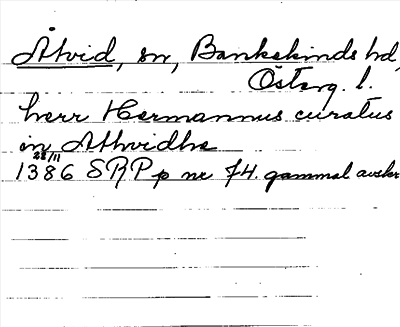 Åtvid, sn, Bankekinds hd,
Österg. l.
herr Hermannus curatus
in Athvidhe
22/11
1386 SRP p nr 74. gammal avskr.